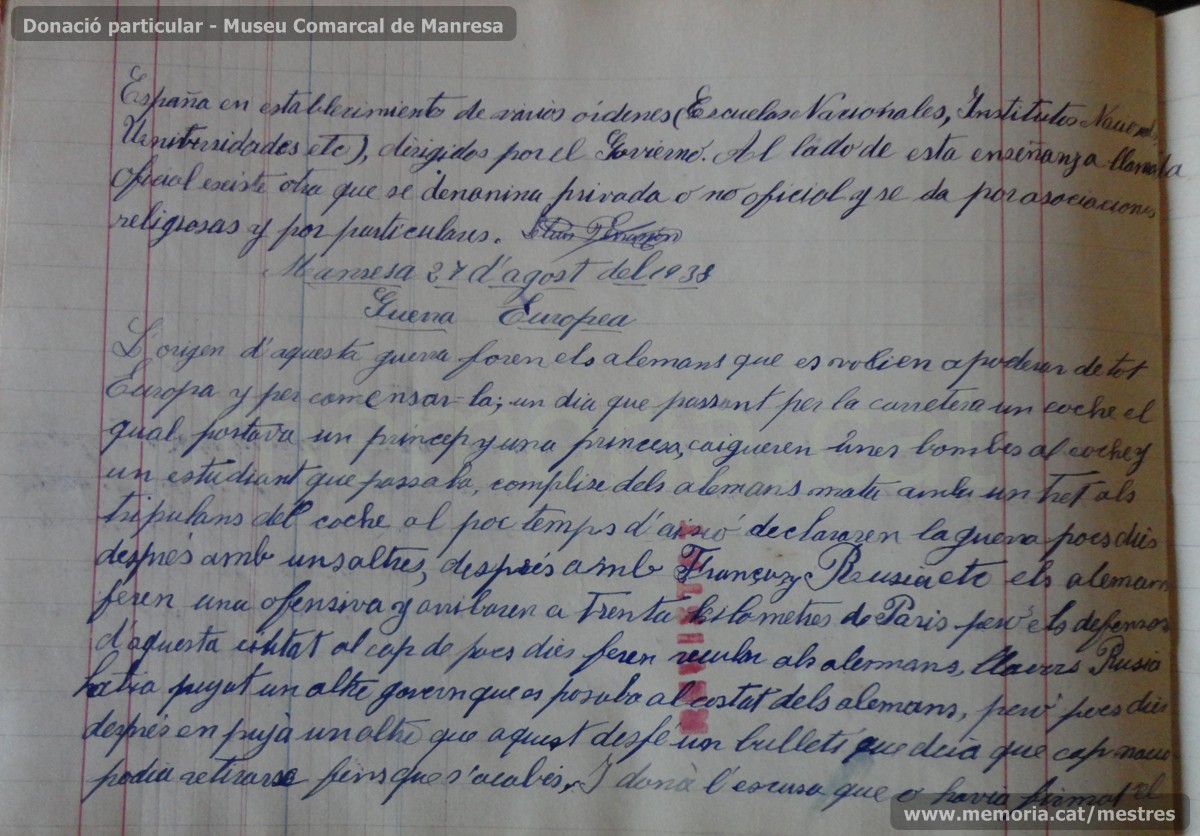 Donació particular - Museu Comarcal de Manresa
España en establecimiento de varios órdenes (Escuelas Nacionales, Institutos Nacional,
Universidades etc), dirigidos por el Govierno. Al lado de esta enseñanza llamada
oficial existe otra que se denanina privada o no oficial y se da por asociaciones
religiosas y por particulares.
Manresa 27 d'agost del 1938
Guerra Europea
L'origen d'aquesta guerra foren els alemans que es volien apoderar de tot
Europa y per comensar-la; un dia que passant per la carretera un coche el
qual portava un princep y una princesa, caigueren unes bombes al coche y
un estudiant que passaba, complise dels alemans matà amb un tret als
tripulans del coche, al poc temps d'aixó declararen la guerra pocs dies
després amb unsaltres, després amb França y Rusia etc els alemans
feren una ofensiva y arribaren a trenta kilometres de Paris peró els defensors
d'aquesta ciutat al cap de pocs dies feren recular als alemans, llavors Rusia
habia pujat un altre govern que es posaba al costat dels alemans, peró pocs dies
després en pujà un altre que aquest desfé un bulletí que deia que cap nació
podia retirarse fins que s'acabés, I donà l'excusa que o havia firmat el
www.memoria.cat/mestres